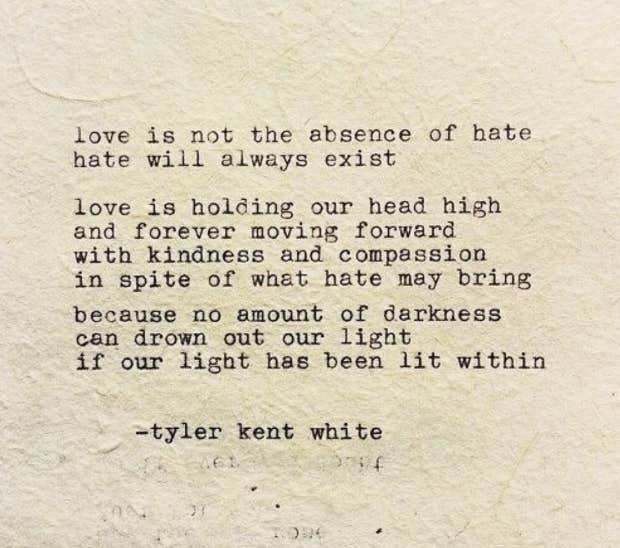 love is not the absence of hate
hate will always exist
love is holding our head high
and forever moving forward
with kindness and compassion
in spite of what hate may bring
because no amount of darkness
can drown out our light
if our light has been lit within
-tyler kent white